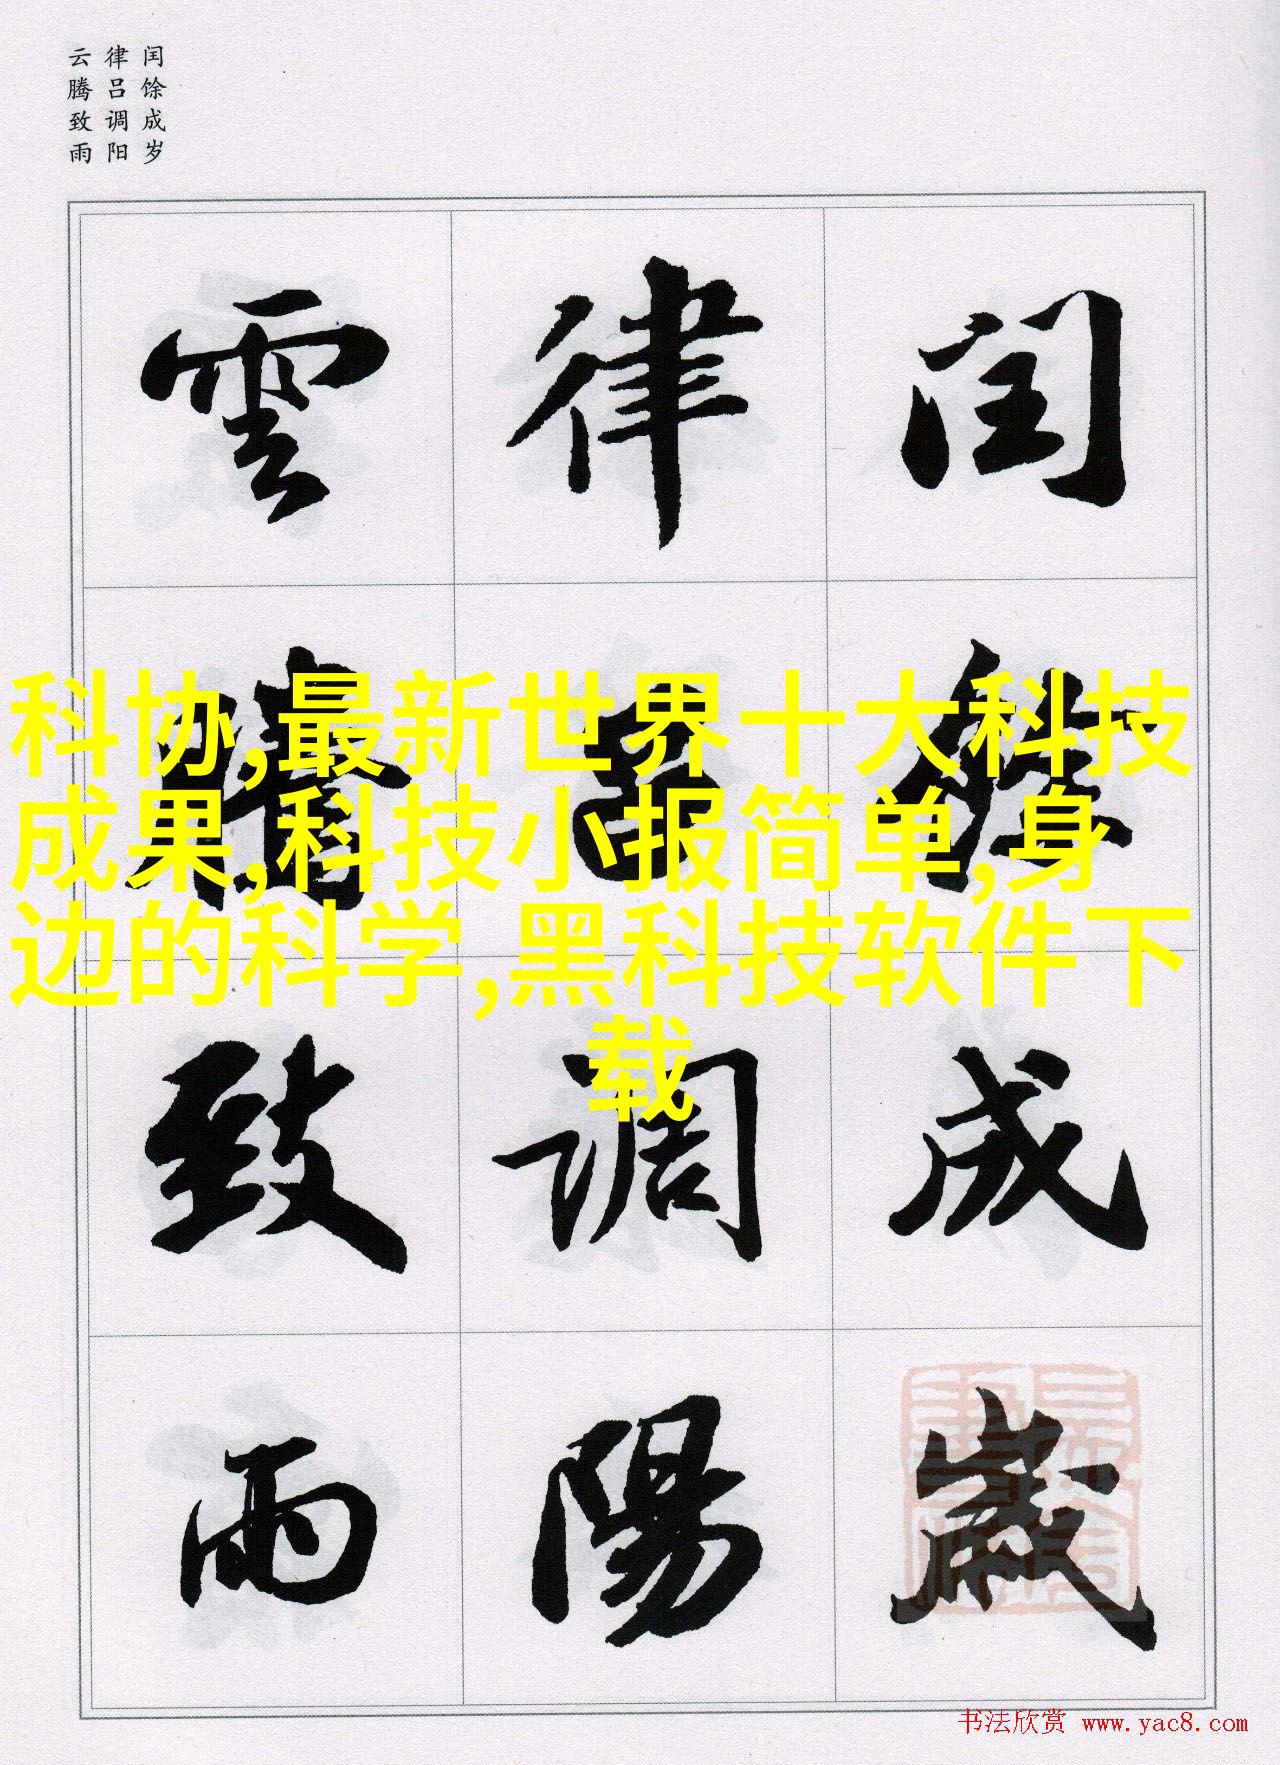 闰馀成岁
律吕调阳
云腾致雨
閏餘成歲
律呂調陽
雲騰致雨
科协,最新世界十大科技
成果,科技小报简单,身
边的科学,黑科技软件下
载
书法欣赏 www.yac8.com